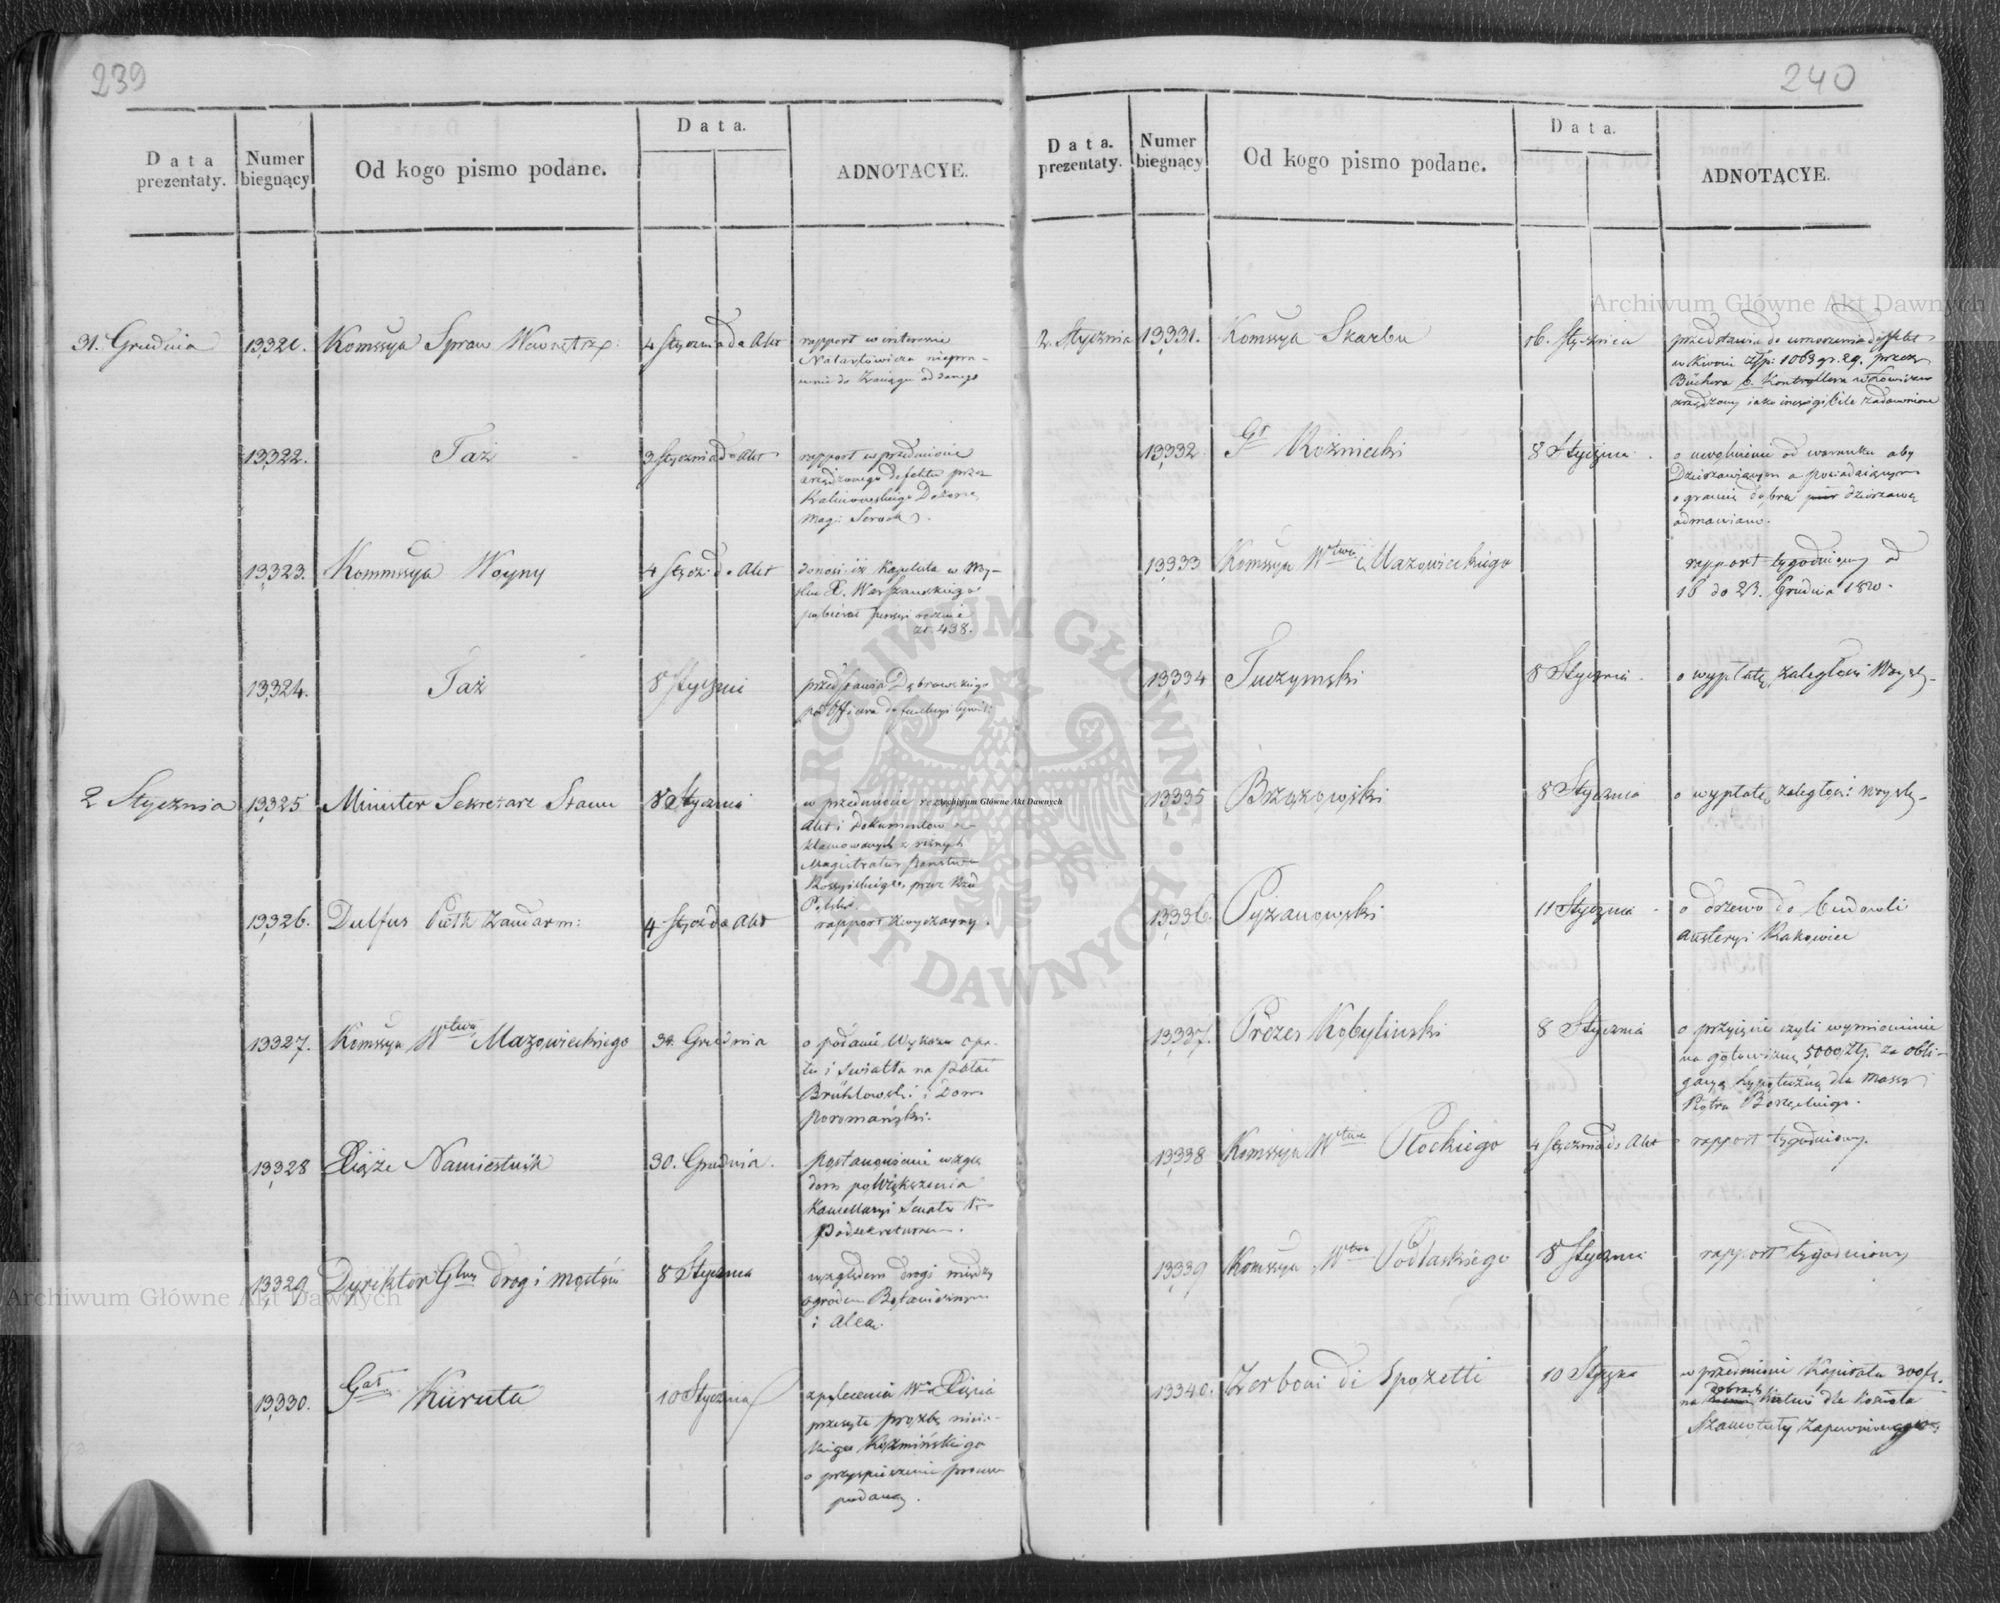 239
Data prezentaty.
Numer biegnący
Od kogo pismo podane.
Data.
ADNOTACYE.
31. Grudnia 13,321. Kommssya Spraw Wewnętrz: 4 Stycznia do Akt rapport w interesie
13,322. Taż 3 Stycznia do Akt rapport w przedmiocie
defektu przez
Kalinowskiego Dozorcę
Mag: Serock
13,323. Kommssya Woyny 4 Stycz: do Akt donosi iż Kapelula w Woy-
sku X. Warszawskiego
pobierał pensyi rocznie
zł 438.
13,324. Taż 8 Stycznia przedstawia Dąbrowskiego
2 Stycznia 13,325 Minister Sekretarz Stanu 8 Stycznia w przedmiocie
Akt i dokumentów
z różnych
Magistratur Państwa
Rossyiskiego, przez Rząd
Polski.
13,326. Dulfus Pułk Żandarm: 4 Stycz do Akt rapport zwyczayny.
13327. Kommssya Wtwa Mazowieckiego 31. Grudnia o podanie Wykazu opa-
łu i światła na Pałac
Brühlowski i Dom
poromański.
13,328 Xiąże Namiestnik 30. Grudnia. postanowienie wzglę
dem powiększenia
Kancellaryi Senatu
Podsekretarza.
13,329 Dyrektor Glny drog i mostów 8 Stycznia względem drogi między
ogrodem Botanicznym
i Aleą.
13,330. Gał Kuruta 10 Stycznia z polecenia Wo Xięcia
przesyła prożbę nieia-
kiego Kozmińskiego
o przyspieszenie processu
240
Data. prezentaty.
Numer biegnący
Od kogo pismo podane.
Data.
ADNOTACYE.
2. Stycznia 13,331. Kommssya Skarbu 16. Stycznia przedstawia do umorzenia defekt
w kwocie złp: 1063 gr. 29. przez
Büchera b. Kontrollera w Łowiczu
zrządzony iako inexigibile zadawnione
13,332 Gł Rożniecki 8 Stycznia o uwolnienie od warunku aby
Dzierżawiącym a posiadaiącym
o granicę dobra dzierżawę
odmawiano.
13,333 Komssya Wtwa Mazowieckiego rapport tygodniowy od
16 do 23. Grudnia 1820.
13,334 Tuczymski 8 Stycznia o wypłatę zaległości Woysk-
13,335 Brzozowski 8 Stycznia o wypłatę zaległości Woysk-
13,336. Pyżanowski 11 Stycznia o drzewo do budowli
Austeryi Rakowiec
13,337. Prezes Kobylinski 8 Stycznia o przyięcie czyli wymienienie
na gotowiznę 5000 Złp. za obli-
gacyą hypoteczną dla Massy
Piotra
13,338 Komssya Wtwa Płockiego 4 Stycznia do Akt rapport tygodniowy.
13,339 Komssya Wtwa Podlaskiego 8 Stycznia rapport tygodniowy
13340. Zerboni di Sposetti 10 Stycznia w przedmiocie Kapitału 300
na dobrach dla Kościoła
Szamotuły Zapewnionego
Archiwum Główne Akt Dawnych
Archiwum Główne Akt Dawnych
Archiwum Główne Akt Dawnych
ARCHIWUM GŁÓWNE AKT DAWNYCH